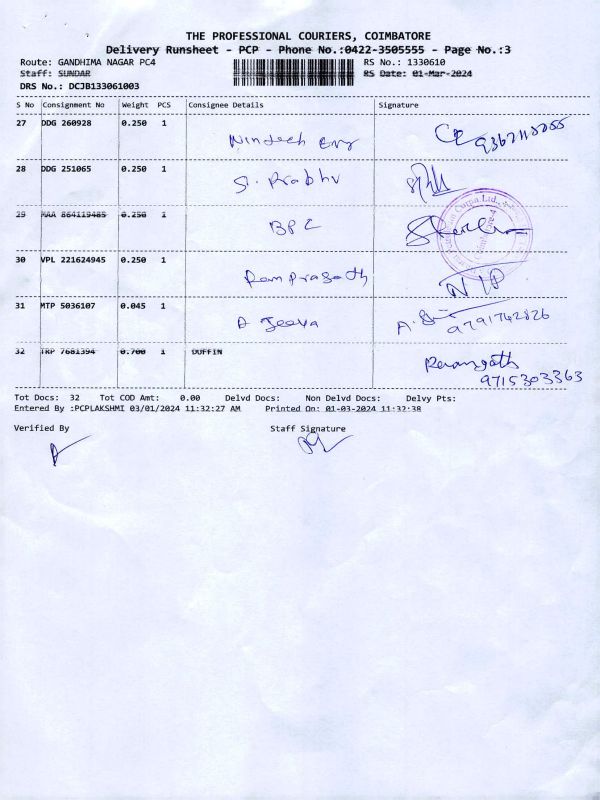 THE PROFESSIONAL COURIERS, COIMBATORE
Delivery Runsheet - PCP - Phone No.:0422-3505555 - Page No.:3
Route: GANDHIMA NAGAR PC4 RS No.: 1330610
Staff: SUNDAR RS Date: 01-Mar-2024
DRS No.: DCJB133061003
S No Consignment No Weight PCS Consignee Details Signature
27 DDG 260928 0.250 1
28 DDG 251065 0.250 1 S. Prabhu
29 MAA 864119485 0.250 1 BPC
30 VPL 221624945 0.250 1 Ramprasath
31 MTP 5036107 0.045 1 A Jeeva 9791742826
32 TRP 7681394 0.700 1 DUFFIN
9715303363
Tot Docs: 32 Tot COD Amt: 0.00 Delvd Docs: Non Delvd Docs: Delvy Pts:
Entered By :PCPLAKSHMI 03/01/2024 11:32:27 AM Printed On: 01-03-2024 11:32:38
Verified By Staff Signature